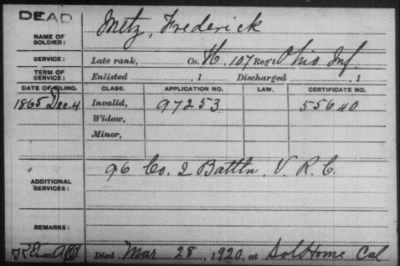 DEAD
NAME OF SOLDIER: Metz, Frederick
SERVICE: Late rank, Co. H, 107 Reg't Ohio Inf.
TERM OF SERVICE: Enlisted , 1 Discharged , 1
DATE OF FILING. CLASS. APPLICATION NO. LAW. CERTIFICATE NO.
1865 Dec. 4 Invalid, 97253 55640
Widow,
Minor,
ADDITIONAL SERVICES: 96 Co. 2 Battln. V. R. C.
REMARKS:
Died Mar 28, 1920, at Sol Home Cal